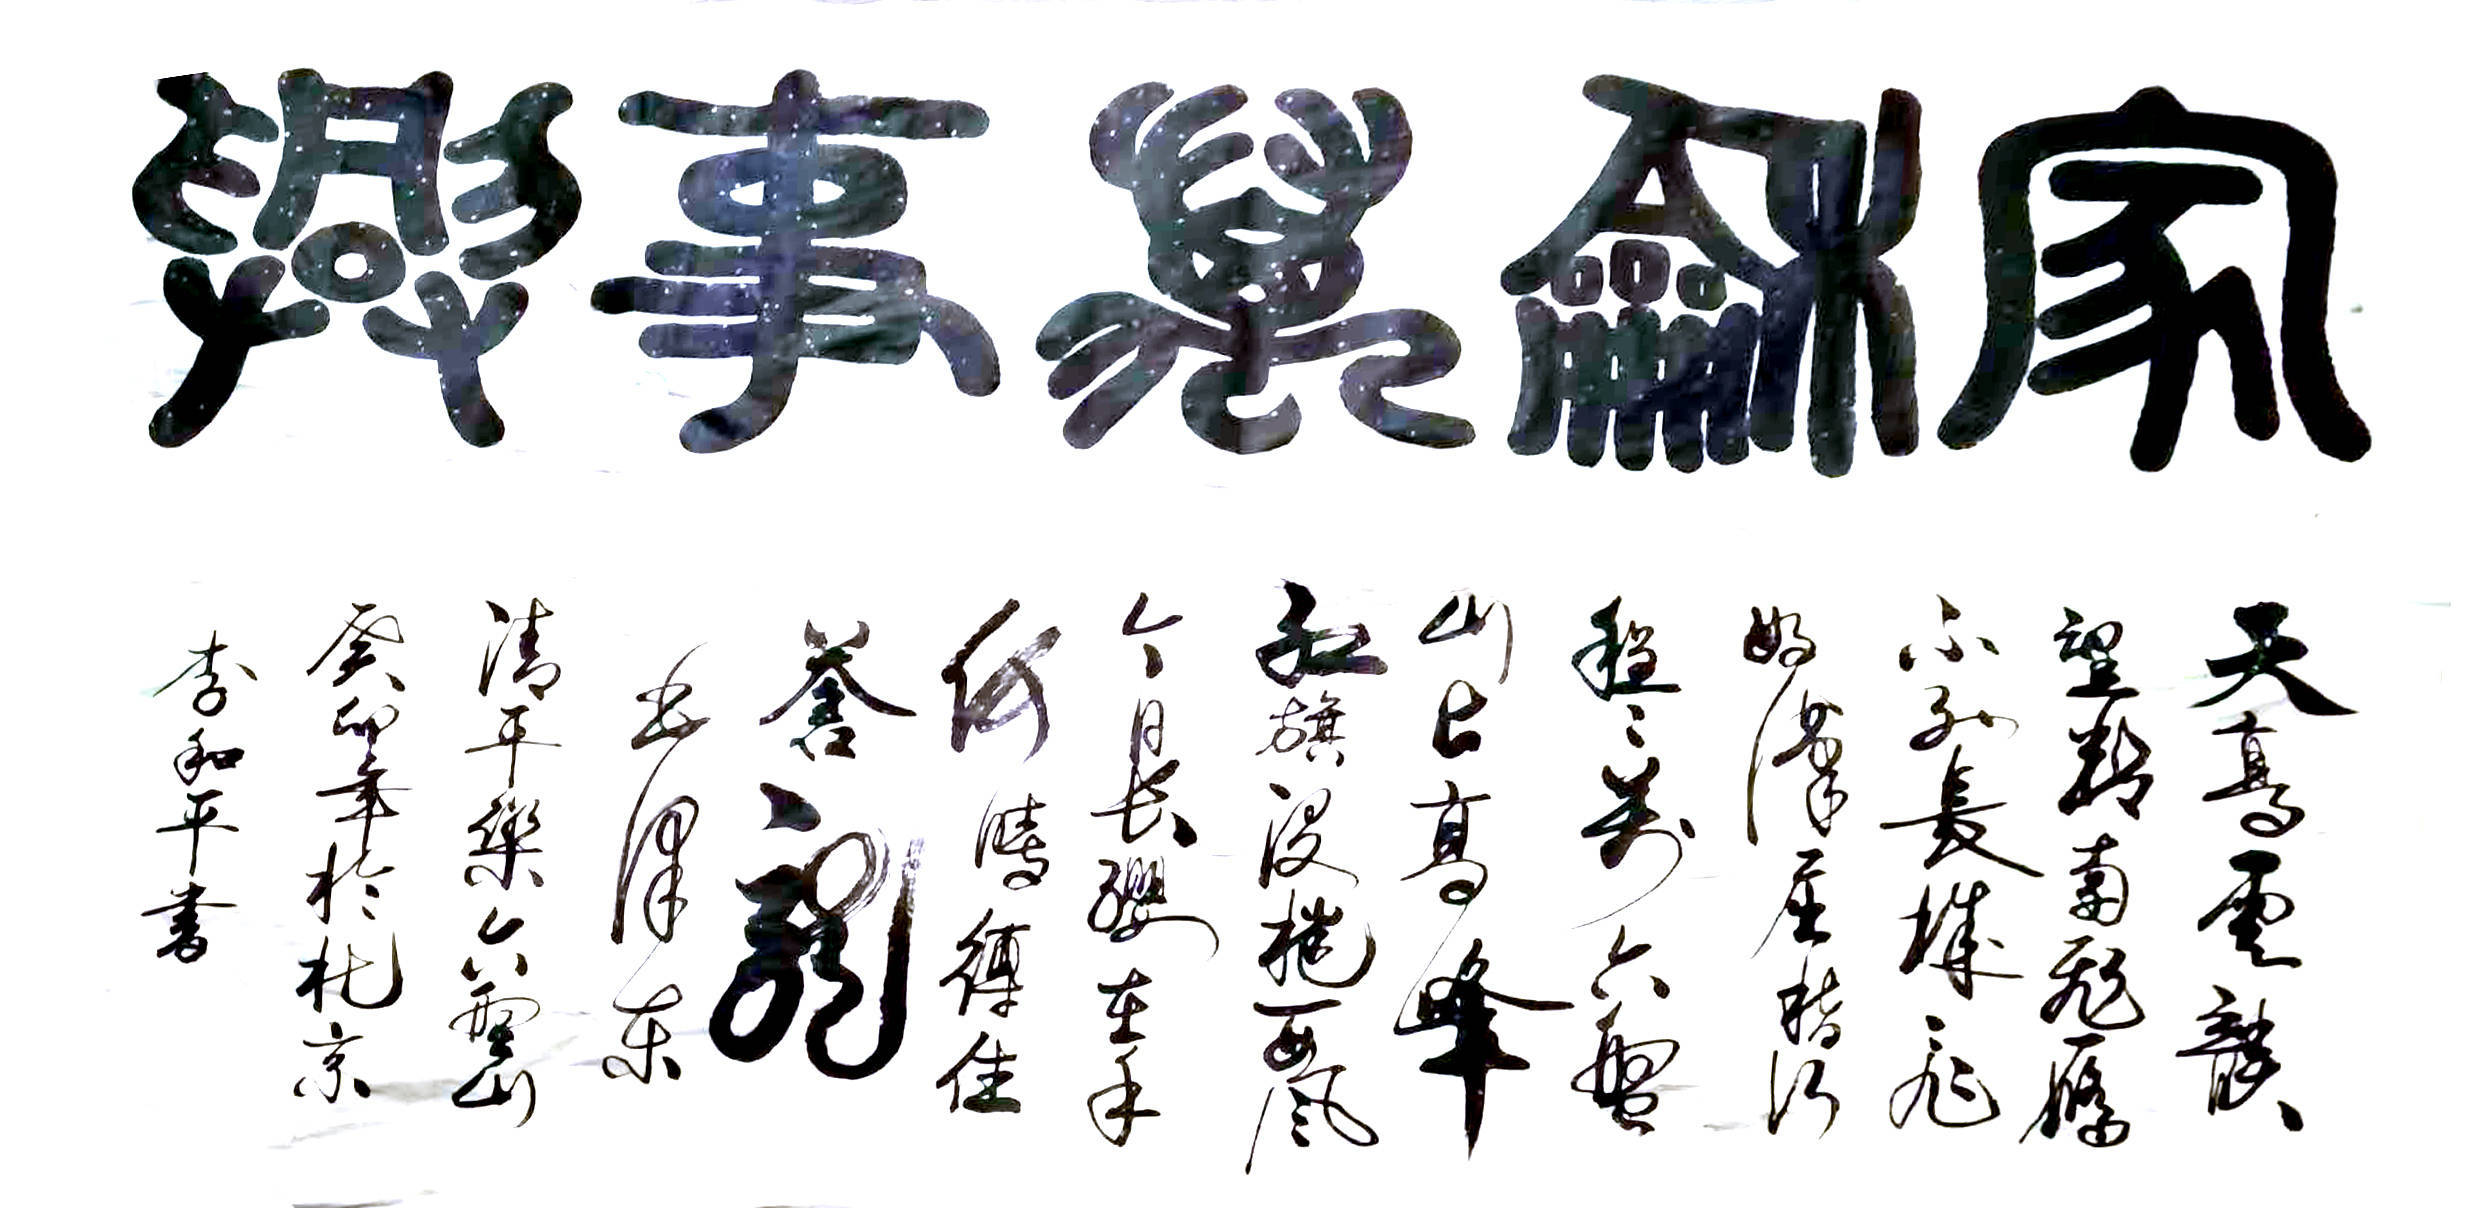 家龢萬事興
天高雲淡
望斷南飛雁
不到長城非
好漢屈指行
程二万六盤
山上高峰
紅旗漫捲西風
今日長纓在手
何時縛住
蒼龍
毛澤东
清平樂六盤山
癸卯年於北京
李和平書